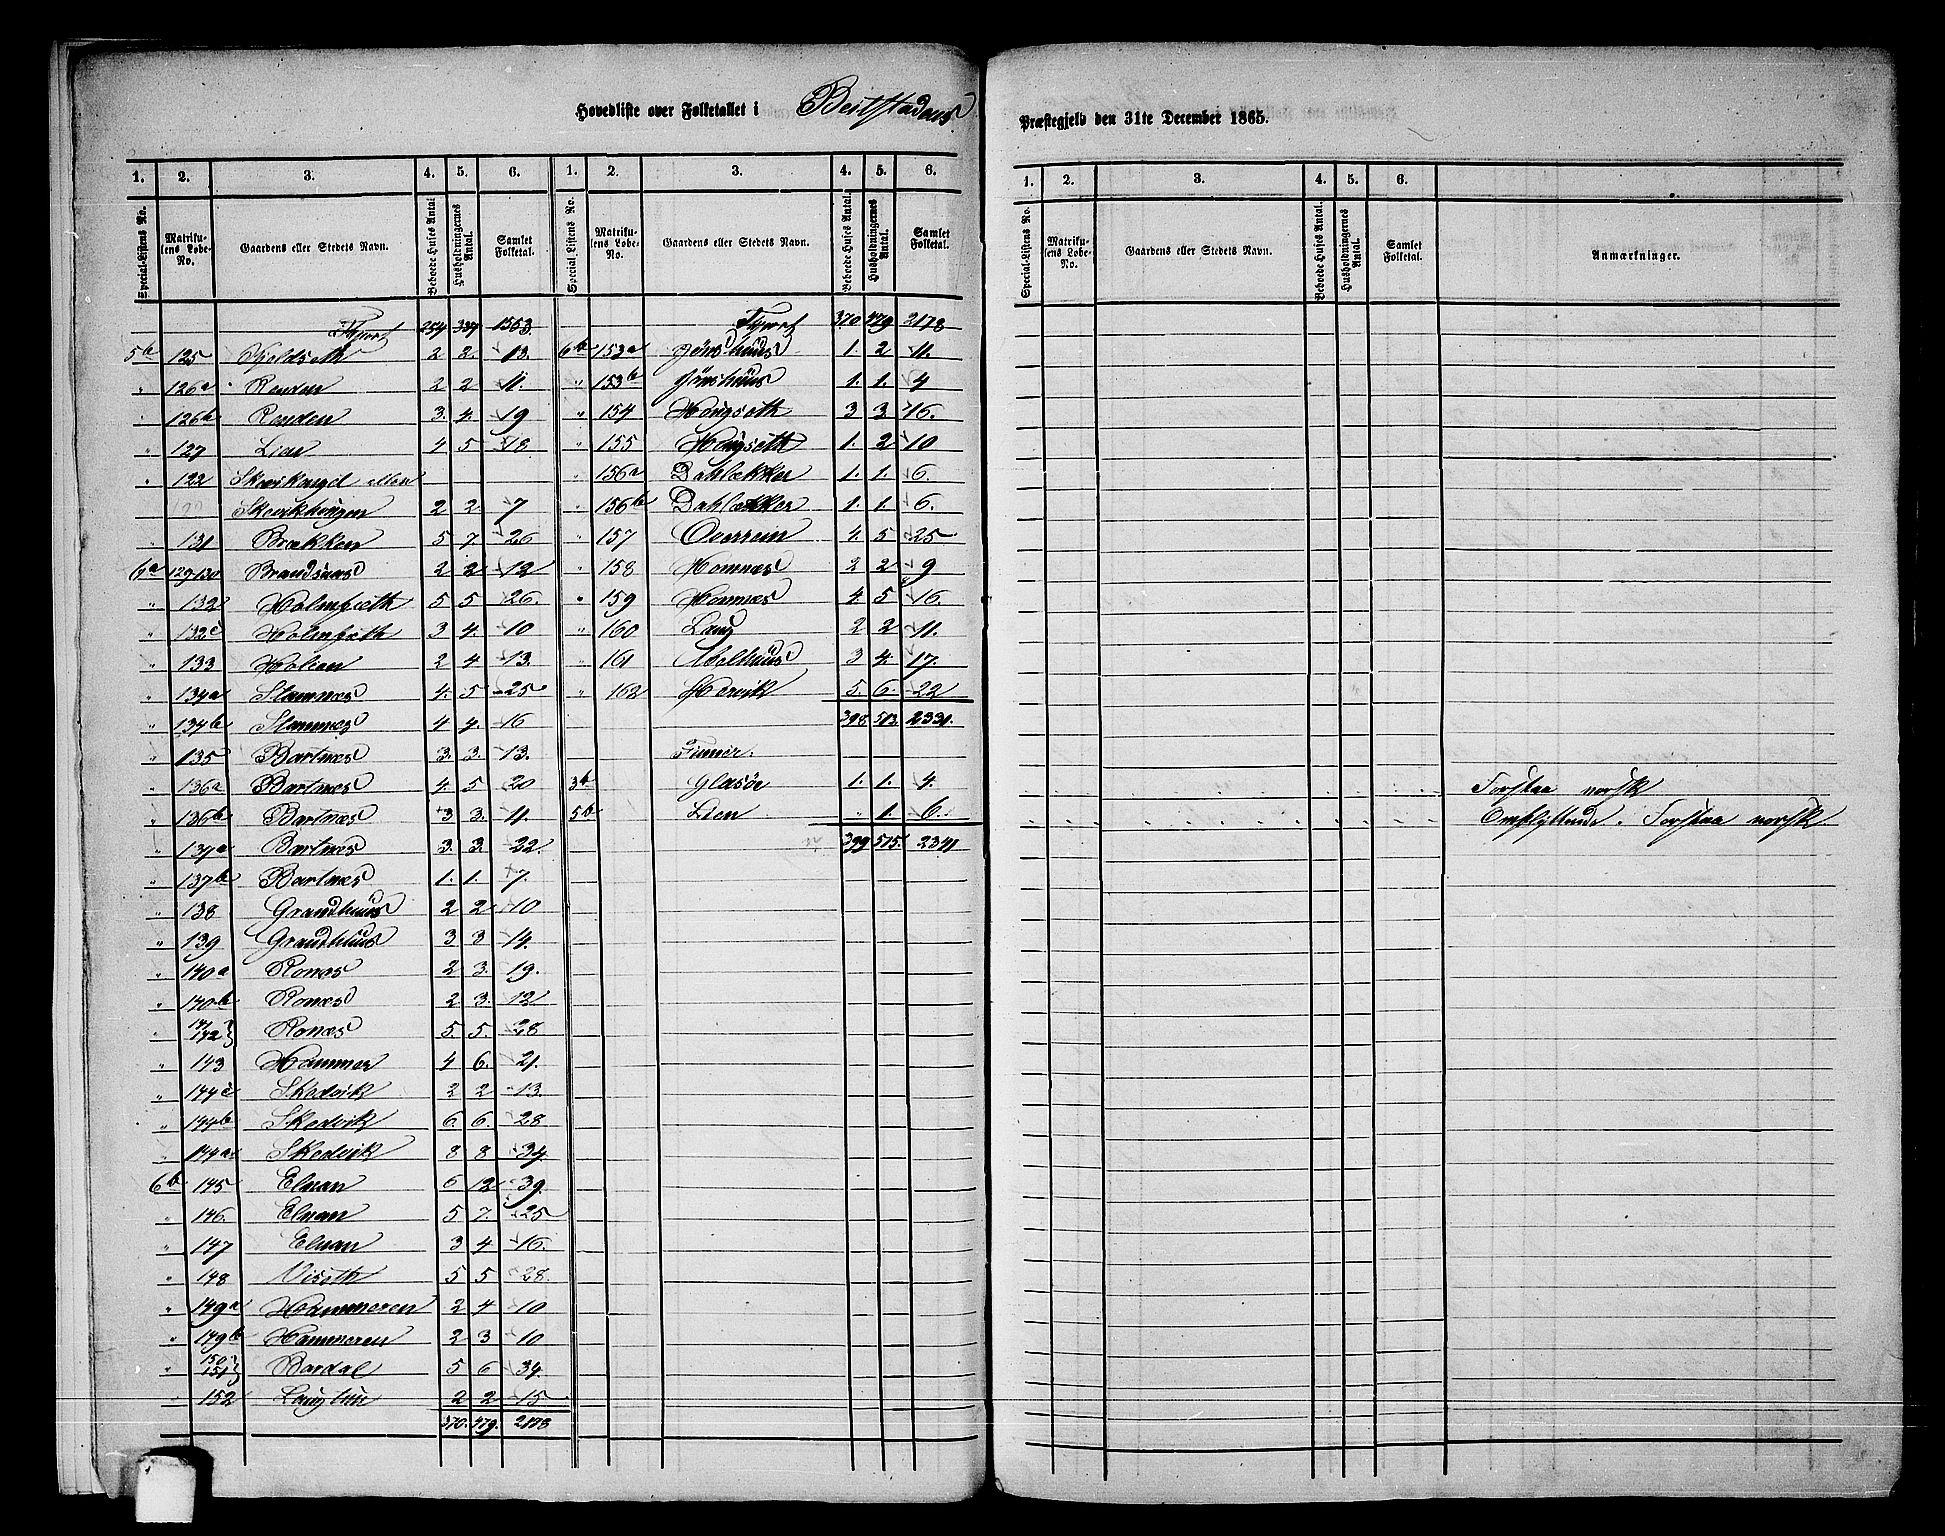 Hovedliste over Folketallet i Beitstadens
Præstegjeld den 31te December 1865.
1. 2. 3. 4. 5. 6. 1. 2. 3. 4. 5. 6.
Special-Listens No. Matrikulens Løbe-No. Gaardens eller Stedets Navn. Beboede Huses Antal. Husholdningernes Antal. Samlet Folketal.
Special-Listens No. Matrikulens Løbe-No. Gaardens eller Stedets Navn. Beboede Huses Antal. Husholdningernes Antal. Samlet Folketal.
Flyort 254 337 1553.
5b 125 Kjeldseth 2 2. 13.
" 126a Renden 2 2 11.
" 126b Renden 3. 4. 19
" 127 Lien 4 5 18
" 122 Skjevkangel eller
Skevikhougen 2 2. 7
" 131 Brækken 5 7. 26
6a 129-130 Brandsaas 2 2 12
" 132 Holmsæth 5 5 26.
" 132c Holmsæth 3 4. 10
" 133 Holien 2 4 13.
" 134a Stamnæs 4. 5 25
" 134b Stamnæs 4 4. 16
" 135 Bartnæs 3. 3. 13.
" 136a Bartnæs 4. 5 20
" 136b Bartnæs 3 3. 11.
" 137a Bartnæs 3. 3. 22.
" 137b Bartnæs 1. 1. 7.
" 138 Grandhuus 2 2 10
" 139 Grandhuus 3 3 14.
" 140a Ronæs 2 3. 19.
" 140b Ronæs 2 3. 12
" 141 142 } Ronæs 5. 5. 28
" 143 Hammer 4 6. 21.
" 144c Skedvik 2 2 13.
" 144b Skedvik 6. 6. 28
" 144a Skedvik 8 8 34
6b 145 Elnan 6 12 39.
" 146. Elnan 5 7. 25
" 147 Elnan 3 4 16.
" 148 Viseth 5 5 28.
" 149a Hammeren 2 4 10
" 149b Hammeren 2 3 10
" 150 151 } Bardal 5 6 34.
152 Laugtun 2 2 15
370. 479. 2178
Flyort 370 479 2178
6b 153a Jønshuus 1. 2 11.
" 153b Jønshuus 1. 1. 4
" 154 Hougseth 3 3. 16.
" 155 Hougseth 1. 2 10
" 156a Dahlækker 1. 1. 6.
" 156b Dahlækker 1. 1. 6
" 157 Overrein 4. 5 25
" 158 Homnæs 2 2 9
" 159 Homnæs 4. 5 16.
" 160 Laug 2 2 11.
" 161 Abelhuus 3 4. 17.
" 162 Hervik 5. 6. 22
398 513. 2331.
Finner.
3b Glasøe 1. 1. 4.
5b Lien " 1. 6.
399 515. 2341
1. 2. 3. 4. 5. 6.
Special-Listens No. Matrikulens Løbe-No. Gaardens eller Stedets Navn. Beboede Huses Antal. Husholdningernes Antal. Samlet Folketal. Anmærkninger.
Forstaa norsk
Omflyttende. Forstaa norsk.